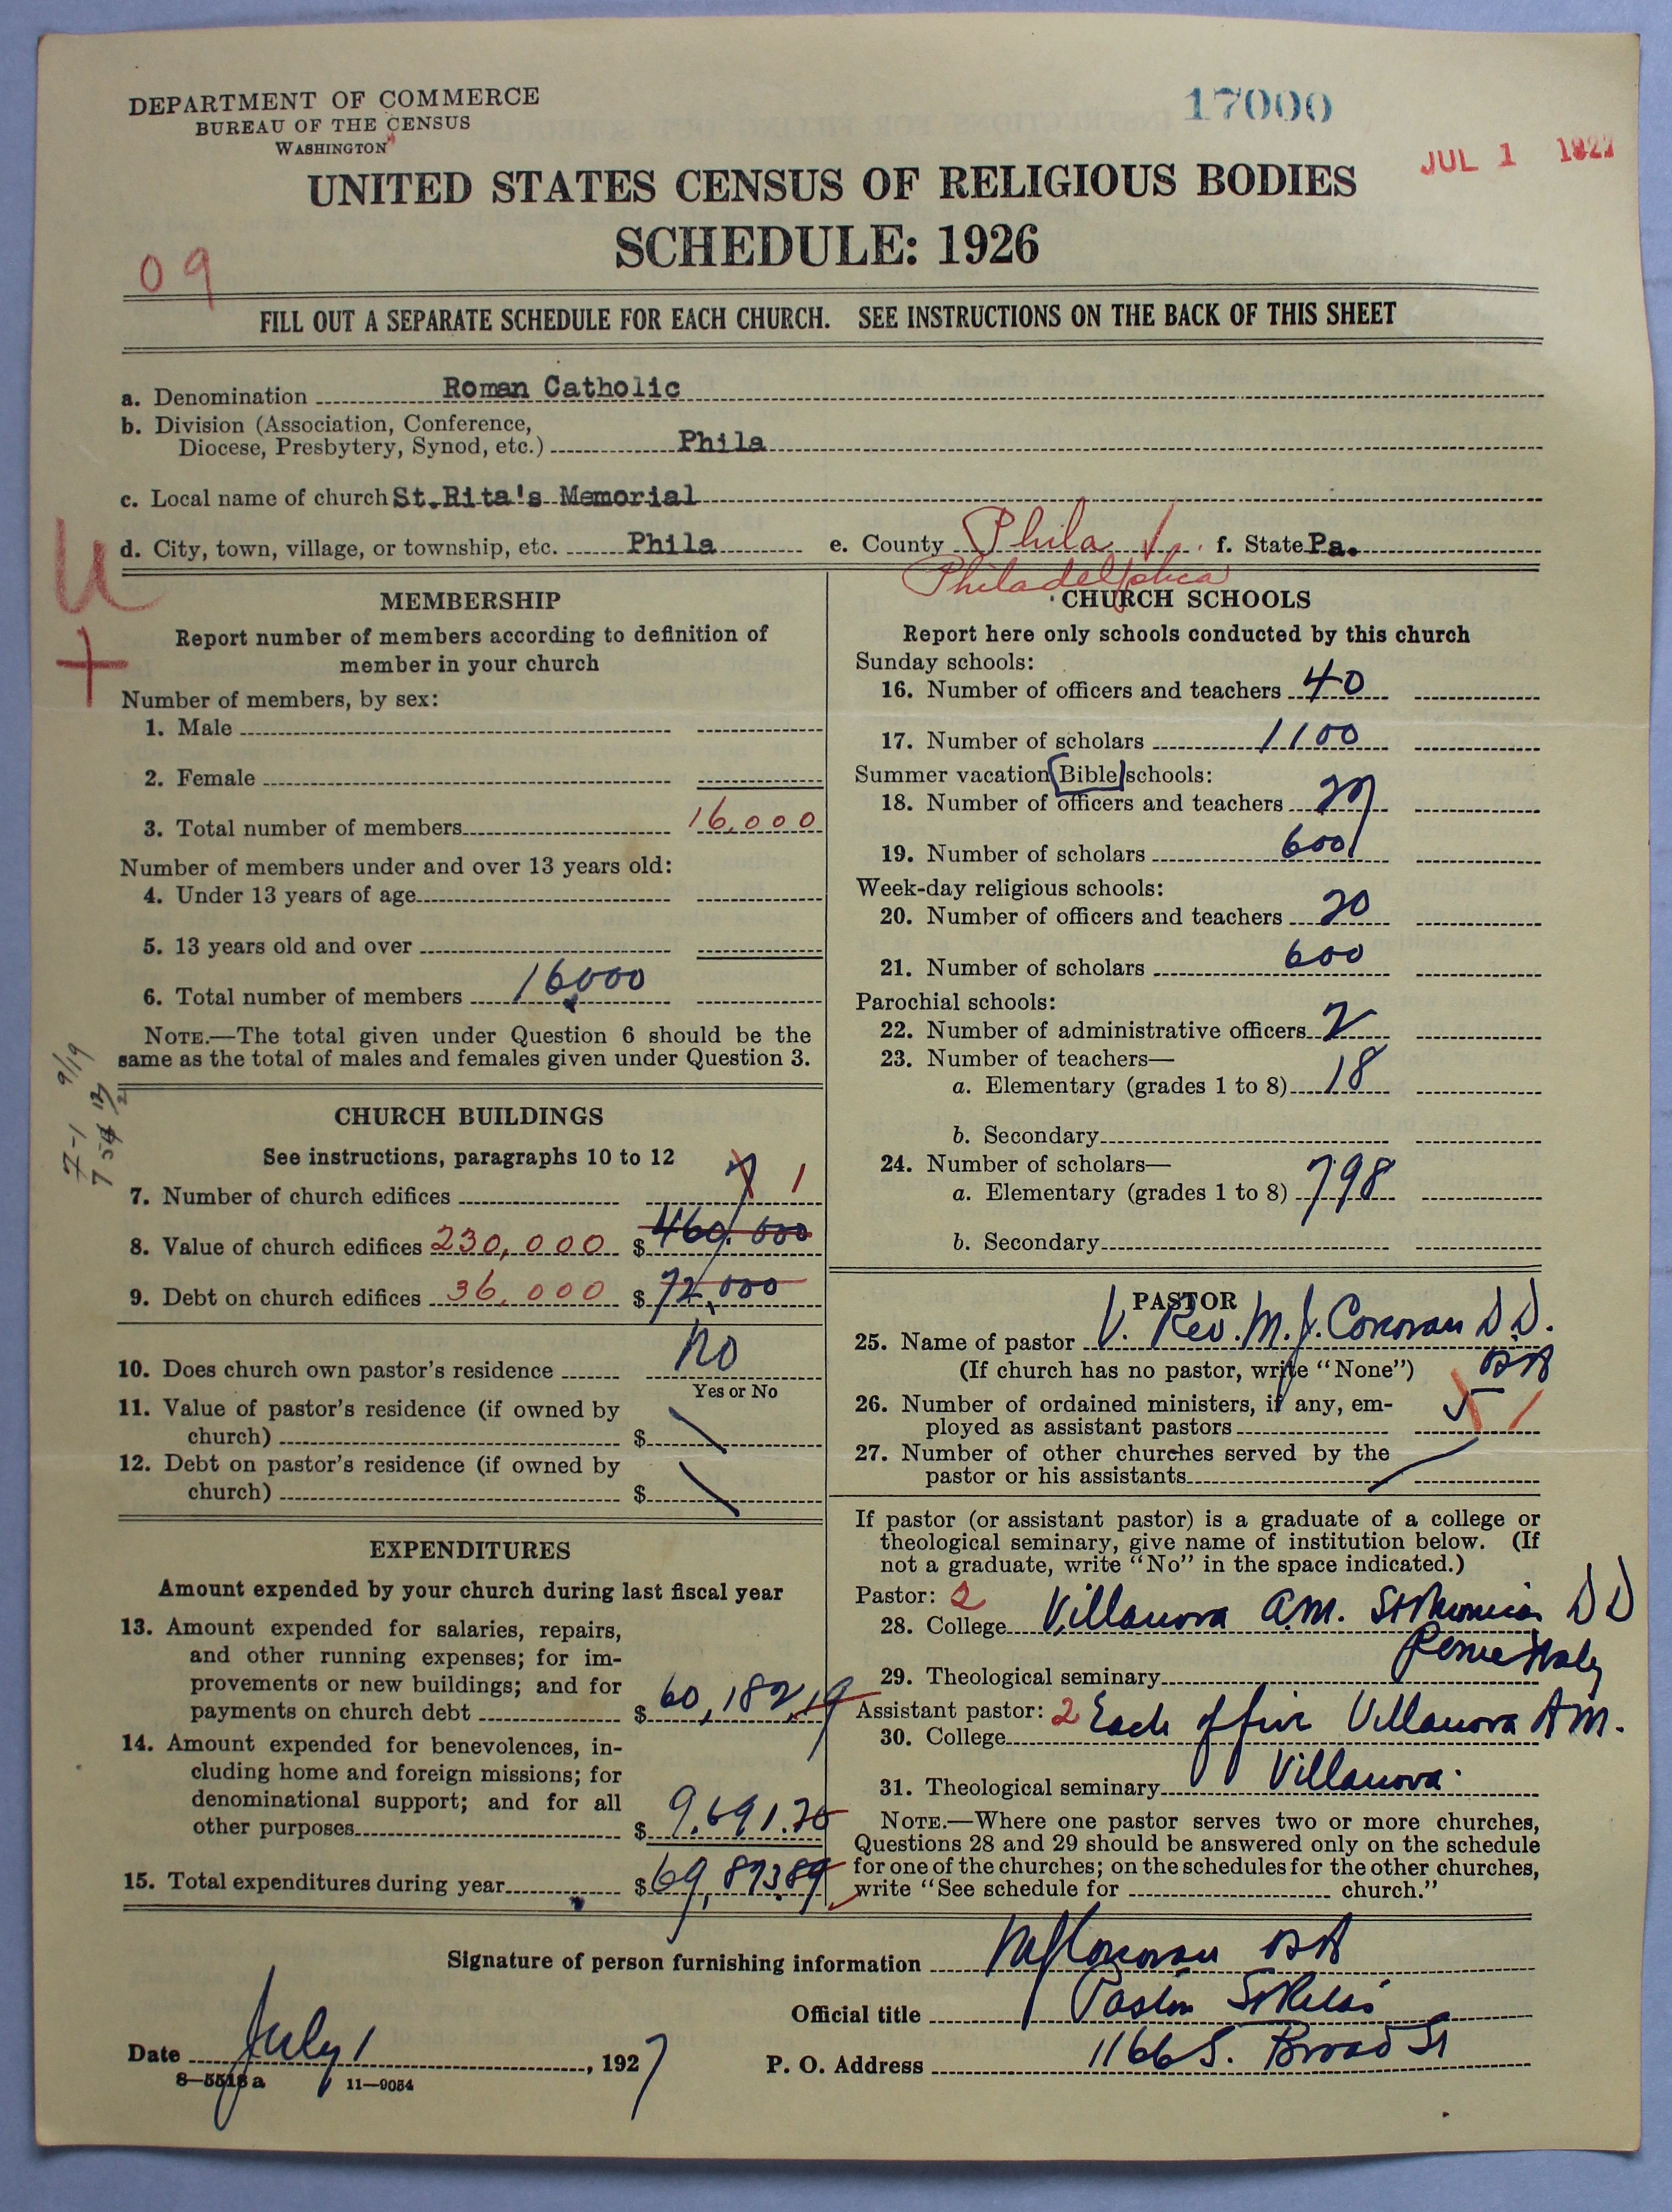 DEPARTMENT OF COMMERCE
BUREAU OF THE CENSUS
WASHINGTON
17000
JUL 1 1927
UNITED STATES CENSUS OF RELIGIOUS BODIES
SCHEDULE: 1926
09
FILL OUT A SEPARATE SCHEDULE FOR EACH CHURCH. SEE INSTRUCTIONS ON THE BACK OF THIS SHEET
a. Denomination Roman Catholic
b. Division (Association, Conference,
Diocese, Presbytery, Synod, etc.) Phila
c. Local name of church St.Rita's Memorial
d. City, town, village, or township, etc. Phila e. County Phila f. State Pa.
Philadelphia
U
+
MEMBERSHIP
Report number of members according to definition of
member in your church
Number of members, by sex:
1. Male
2. Female
3. Total number of members 16,000
Number of members under and over 13 years old:
4. Under 13 years of age
5. 13 years old and over
6. Total number of members 16000
NOTE.—The total given under Question 6 should be the
same as the total of males and females given under Question 3.
9/19
7-1
CHURCH BUILDINGS
See instructions, paragraphs 10 to 12
7. Number of church edifices 1
8. Value of church edifices 230,000 $ 460,000
9. Debt on church edifices 36,000 $ 72,000
10. Does church own pastor's residence No
Yes or No
11. Value of pastor's residence (if owned by
church) $
12. Debt on pastor's residence (if owned by
church) $
EXPENDITURES
Amount expended by your church during last fiscal year
13. Amount expended for salaries, repairs,
and other running expenses; for im-
provements or new buildings; and for
payments on church debt $ 60,182,19
14. Amount expended for benevolences, in-
cluding home and foreign missions; for
denominational support; and for all
other purposes $ 9,691.70
15. Total expenditures during year $ 69,873.89
CHURCH SCHOOLS
Report here only schools conducted by this church
Sunday schools:
16. Number of officers and teachers 40
17. Number of scholars 1100
Summer vacation (Bible) schools:
18. Number of officers and teachers 20
19. Number of scholars 600
Week-day religious schools:
20. Number of officers and teachers 20
21. Number of scholars 600
Parochial schools:
22. Number of administrative officers 2
23. Number of teachers—
a. Elementary (grades 1 to 8) 18
b. Secondary
24. Number of scholars—
a. Elementary (grades 1 to 8) 798
b. Secondary
PASTOR
25. Name of pastor V. Rev. M. J. Corcoran D.D.
(If church has no pastor, write "None") OSA
26. Number of ordained ministers, if any, em-
ployed as assistant pastors 5
27. Number of other churches served by the
pastor or his assistants
If pastor (or assistant pastor) is a graduate of a college or
theological seminary, give name of institution below. (If
not a graduate, write "No" in the space indicated.)
Pastor: 2
28. College Villanova A.M. St Monica's DD
29. Theological seminary Rome Italy
Assistant pastor: 2 Each of five Villanova A M.
30. College
31. Theological seminary Villanova
NOTE.—Where one pastor serves two or more churches,
Questions 28 and 29 should be answered only on the schedule
for one of the churches; on the schedules for the other churches,
write "See schedule for church."
Signature of person furnishing information MJCorcoran OSA
Official title Pastor St Ritas
Date July 1, 1927 P. O. Address 1166 S. Broad St
8—5518 a 11—9054